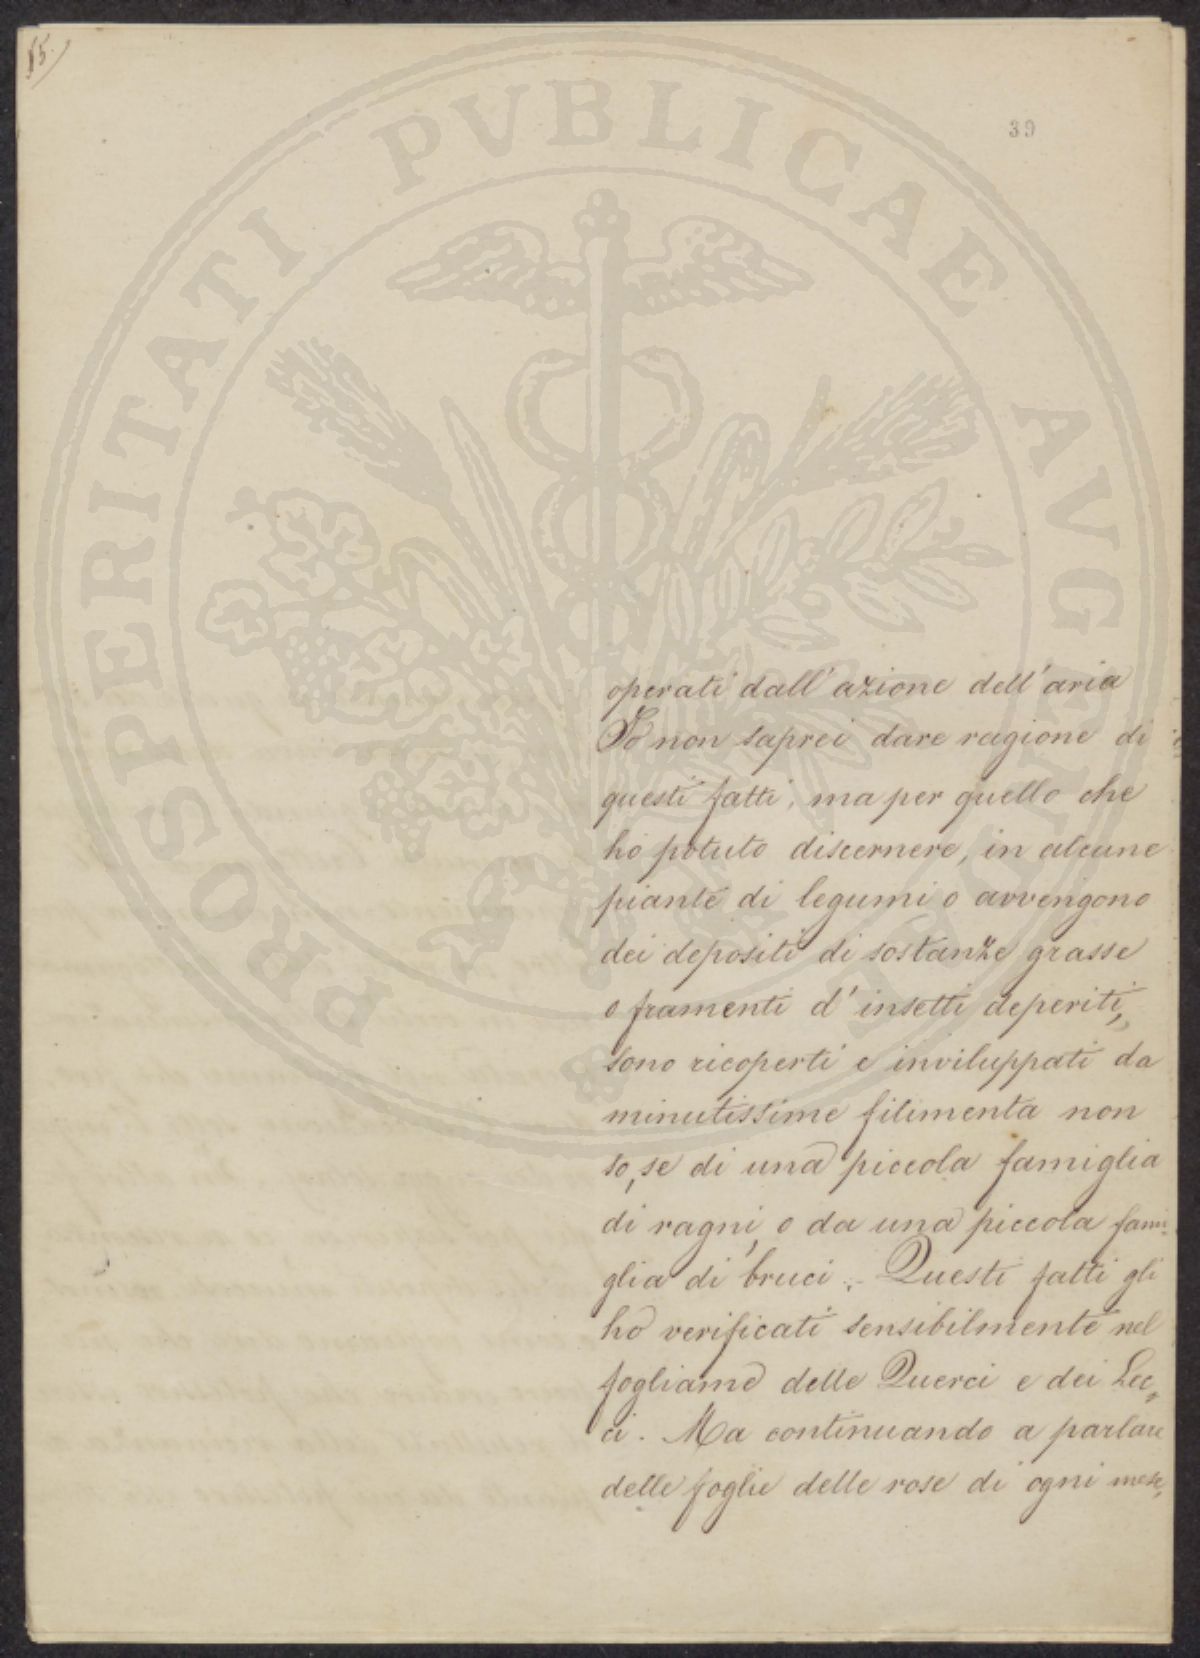 15.
39
PROSPERITATI PVBLICAE AVGENDAE
operati dall'azione dell'aria
Io non saprei dare ragione di
questi fatti, ma per quello che
ho potuto discernere, in alcune
piante di legumi o avvengono
dei depositi di sostanze grasse
o framenti d'insetti deperiti,
sono ricoperti e inviluppati da
minutissime filimenta non
so, se di una piccola famiglia
di ragni, o da una piccola fami-
glia di bruci. Questi fatti gli
ho verificati sensibilmente nel
fogliame delle Querci e dei Lec-
ci. Ma continuando a parlare
delle foglie delle rose di ogni mese,